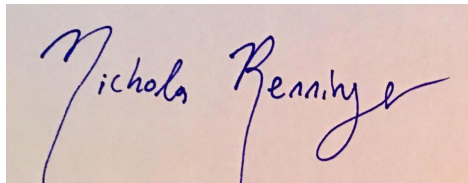 Nichola Renninge